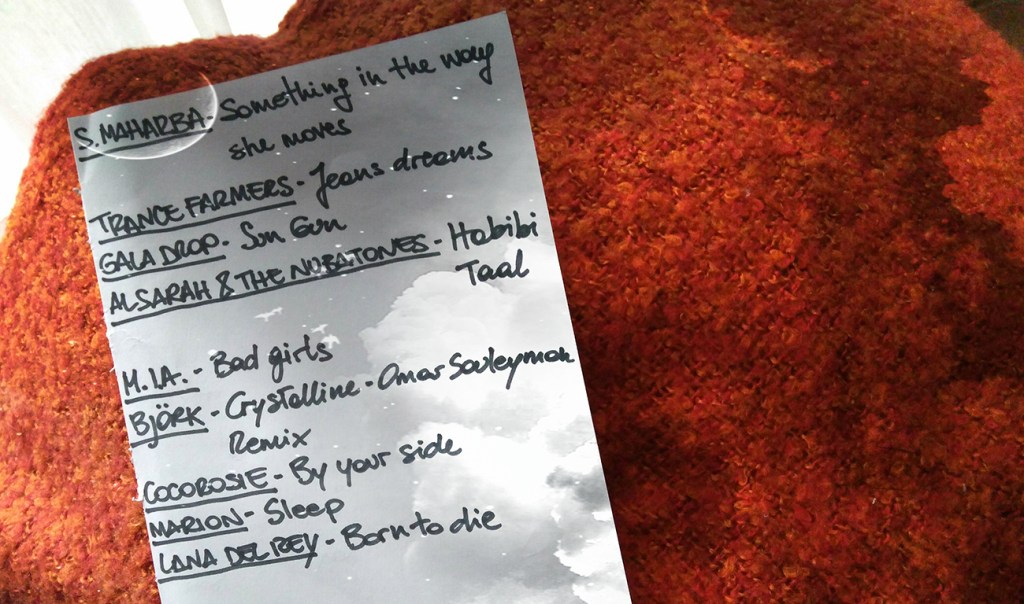 S. MAHARBA - Something in the way
she moves
TRANCE FARMERS - Jeans dreams
GALA DROP - Sun Gun
ALSARAH & THE NUBATONES - Habibi
Taal
M.I.A. - Bad girls
BJÖRK - Crystalline - Omar Souleyman
Remix
COCOROSIE - By your side
MARION - Sleep
LANA DEL REY - Born to die